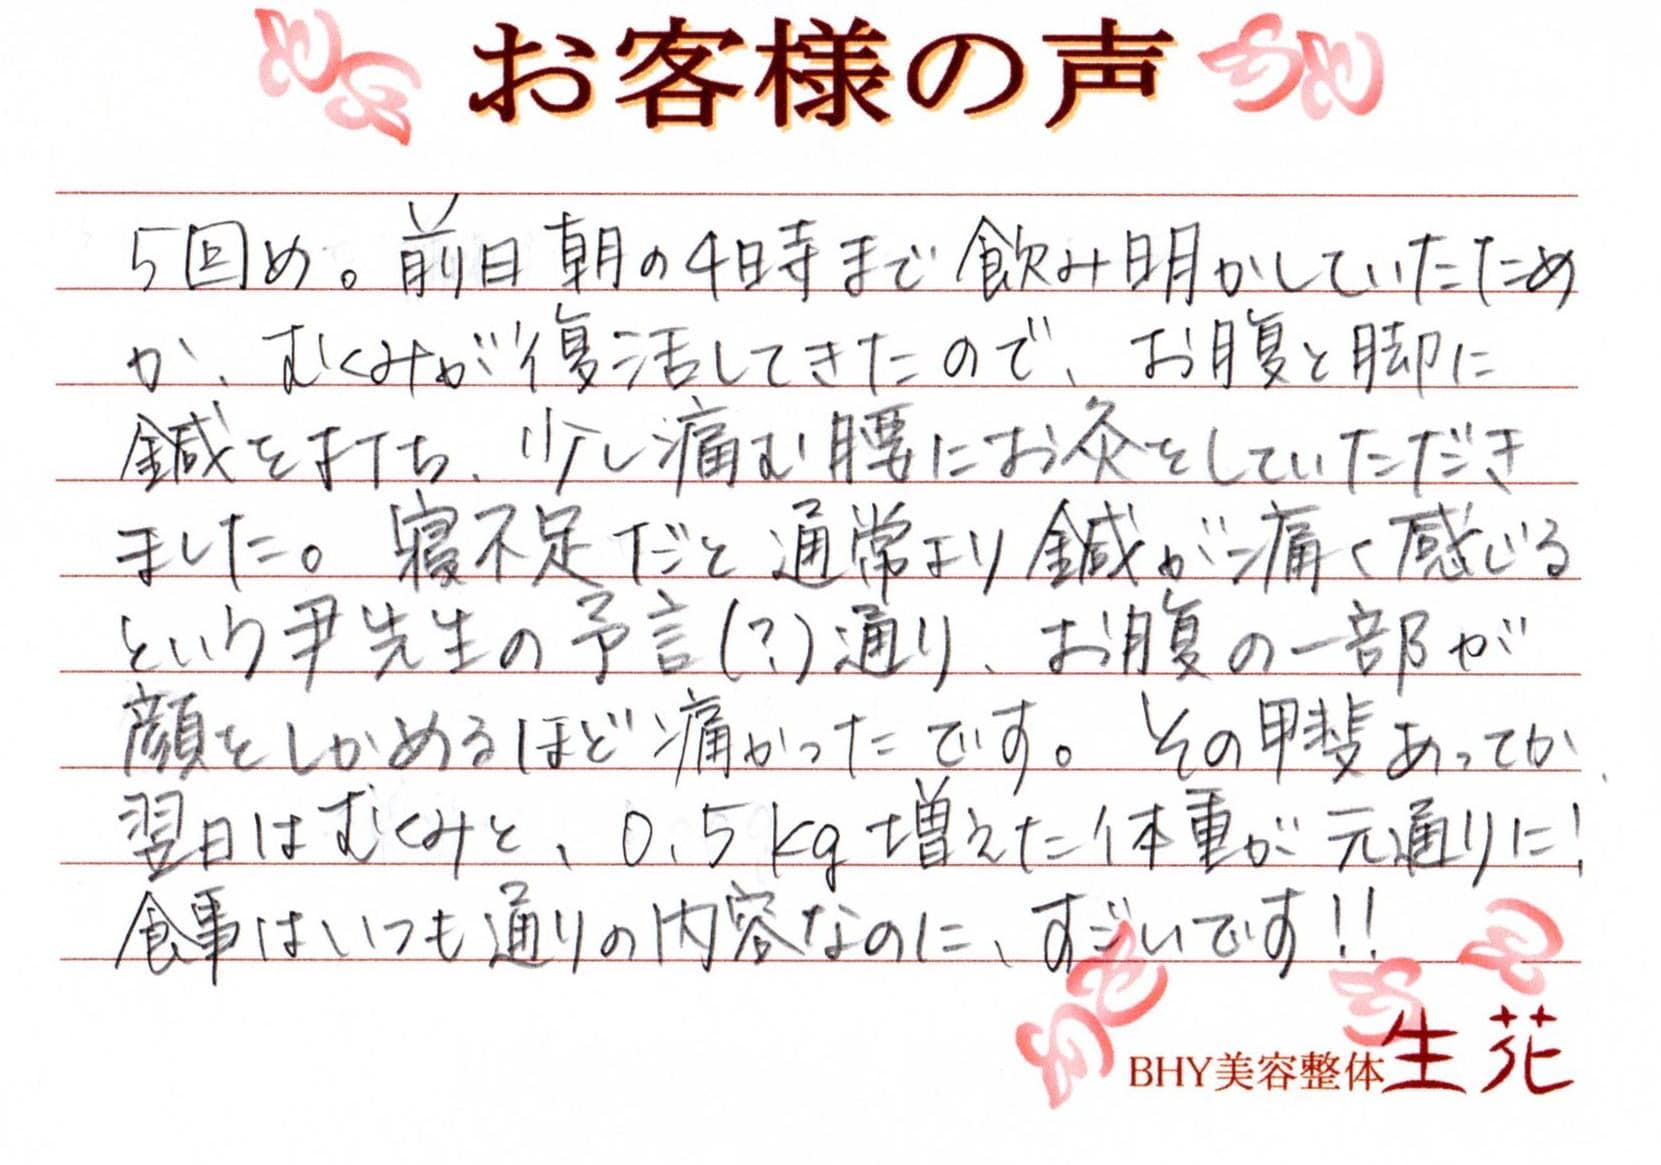 お客様の声
5回め。前日朝の4時まで飲み明かしていたため
か、むくみが復活してきたので、お腹と脚に
鍼を打ち、少し痛む腰にお灸をしていただき
ました。寝不足だと通常より鍼が痛く感じる
という尹先生の予言(?)通り、お腹の一部が
顔をしかめるほど痛かったです。その甲斐あってか、
翌日はむくみと、0.5kg増えた体重が元通りに!
食事はいつも通りの内容なのに、すごいです!!
BHY美容整体生花